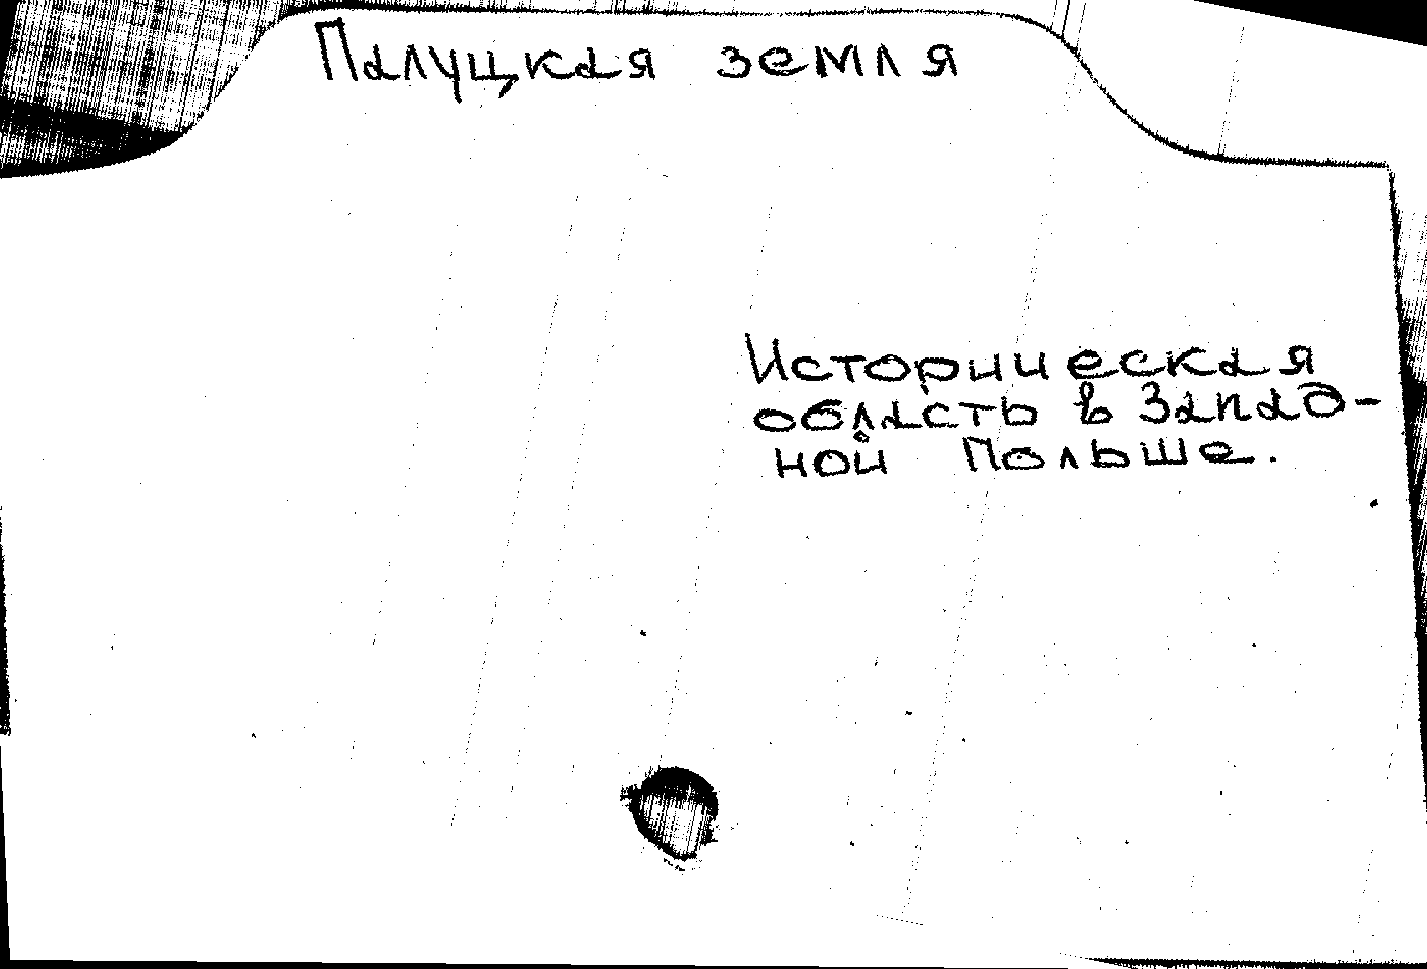 Палуцкая земля
Историческая
область в Запад-
ной Польше.